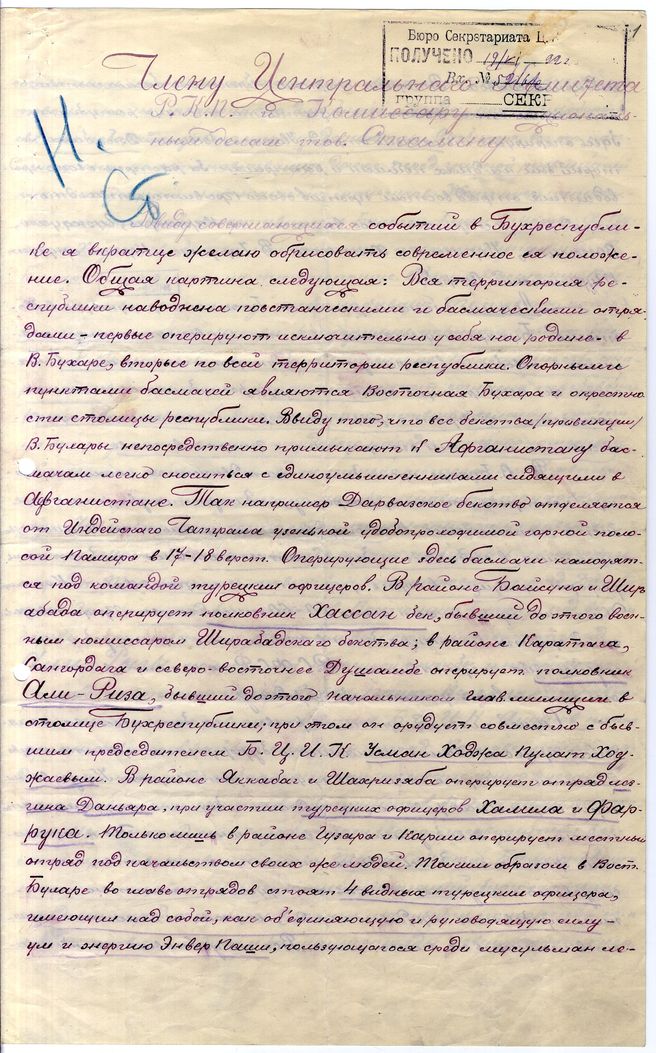 1
Бюро Секретариата Ц.
ПОЛУЧЕНО 19/XI 22г
Вх. №
группа СЕКР
Члену Центрального Комитета
Р.К.П. и Комиссару
ным делам тов. Сталину
11.
Ввиду совершающихся событий в Бухреспубли-
ке я вкратце желаю обрисовать современное ея положе-
ние. Общая картина следующая: Вся территория ре-
спублики наводнена повстанческими и басмаческими отря-
дами - первые оперируют исключительно у себя на родине - в
В. Бухаре, вторые по всей территории республики. Опорными
пунктами басмачей являются Восточная Бухара и окрестно-
сти столицы республики. Ввиду того, что все бекства /провинции/
В. Бухары непосредственно примыкают к Афганистану бас-
мачам легко сноситься с единомышленниками сидящими в
Афганистане. Так например Дарвазское бекство отделяется
от Индейскаго Чатрала узенькой удобопроходимой горной поло-
сой Памира в 17-18 верст. Оперирующие здесь басмачи находят-
ся под командой турецких офицеров. В районе Байсуна и Шир-
абада оперирует полковник Хассан бек, бывший до этого воен-
ным комиссаром Ширабадского бекства; в районе Каратага,
Сангордага и северо-восточнее Душамбе оперирует полковник
Али-Риза, бывший до этого начальником глав. милиции в
столице Бухреспублики; при этом он орудует совместно с быв-
шим председателем Б. Ц. И. К Усман Ходжа Пулат Ход-
жаевым. В районе Яккабаг и Шахризяба оперирует отряд лез-
гина Даньяра, при участии турецких офицеров Халила и Фар-
рука. Только лишь в районе Гузара и Карши оперирует местный
отряд под начальством своих же людей. Таким образом в Вост.
Бухаре во главе отрядов стоят 4 видных турецких офицера,
имеющих над собой, как об'единяющую и руководящую силу -
ум и энергию Энвер Паши, пользующагося среди мусульман ле-